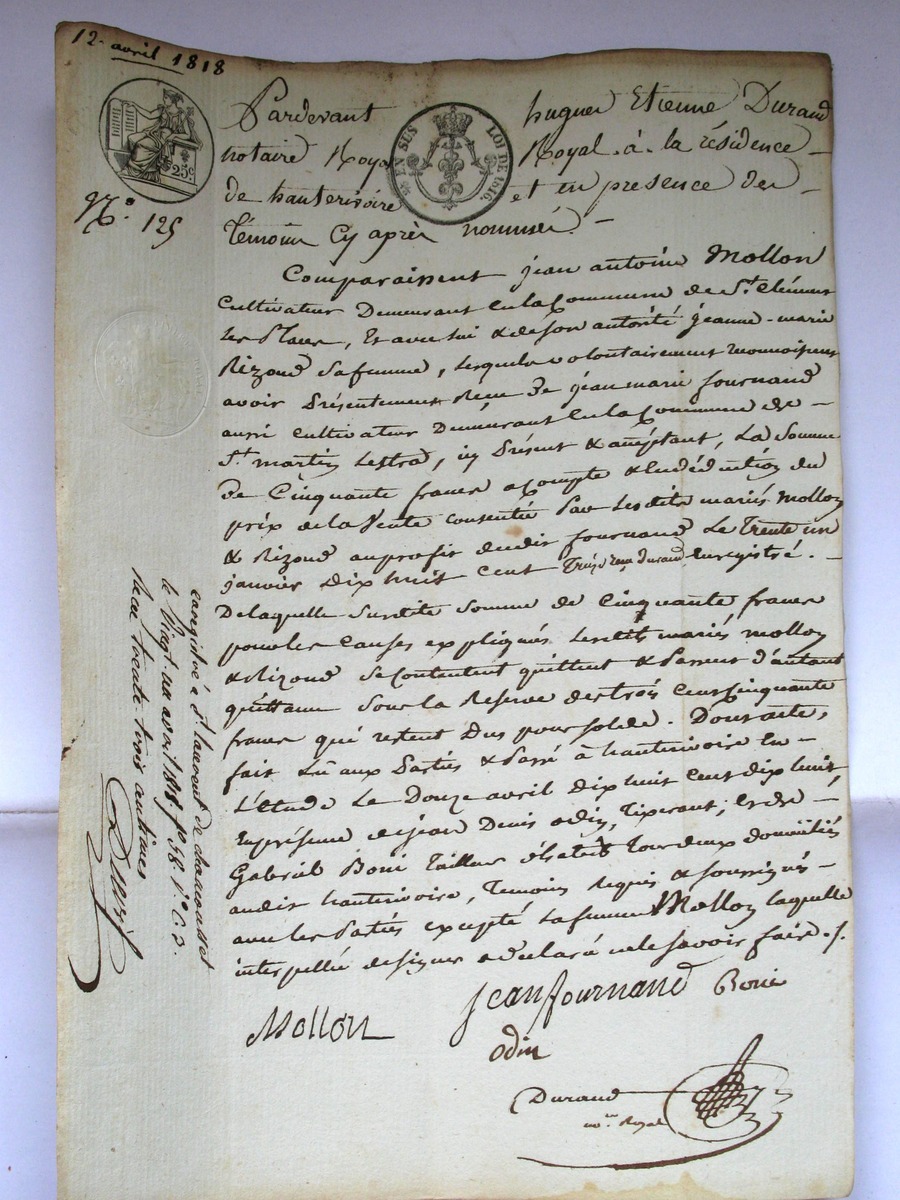 12 avril 1818
25c
EN SUS LOI DE 1816.
N.º 125
Pardevant hugues Etienne Durand
notaire Royal Royal à la résidence
de hauterivoire et en presence des
témoins cy après nommés.
Comparaissent jean antoine Mollon
cultivateur Demeurant en la Commune de St. Clément
les places, Et avec lui & de son autorité jeanne-marie
Rizond sa femme, lesquels volontairement reconnoissent
avoir Présentement Reçu De jean marie fournand
aussi cultivateur Demeurant en la Commune de
St. martin Lestra, icy Présent & acceptant, La Somme
de Cinquante francs acompte & en déduction du
prix de la Vente consentie Par lesdits mariés Mollon
& Rizond au profit dudit fournand Le Trente un
janvier Dix huit cent Treize Durand enregistré.
De laquelle Susdite Somme de Cinquante francs
pour les Causes expliqués lesdits mariés mollon
& Rizond se contentent quittent & Passent d'autant
quittance Sous la Reserve des trois Cent Cinquante
francs qui restent Dus pour solde. Dont acte,
fait Lu aux Parties & Passé à hauterivoire En
L'étude Le Douze avril Dix huit cent dix huit,
En présence de jean Denis odin, Tixerant, et de
Gabriel Boni Tailleur d'habits tous deux domiciliés
audit hauterivoire, Temoins Requis & soussignés
avec les Parties excepté la femme Mollon laquelle
interpellée de signer a declaré ne le savoir faire ./.
Mollon
Jean fournand
Odin
Durand
nore. Royal
enregistré à St. laurent de chamousset
le Vingt un avril 1818 fo. 58 Vo. C. 3.
Recu trente trois centimes